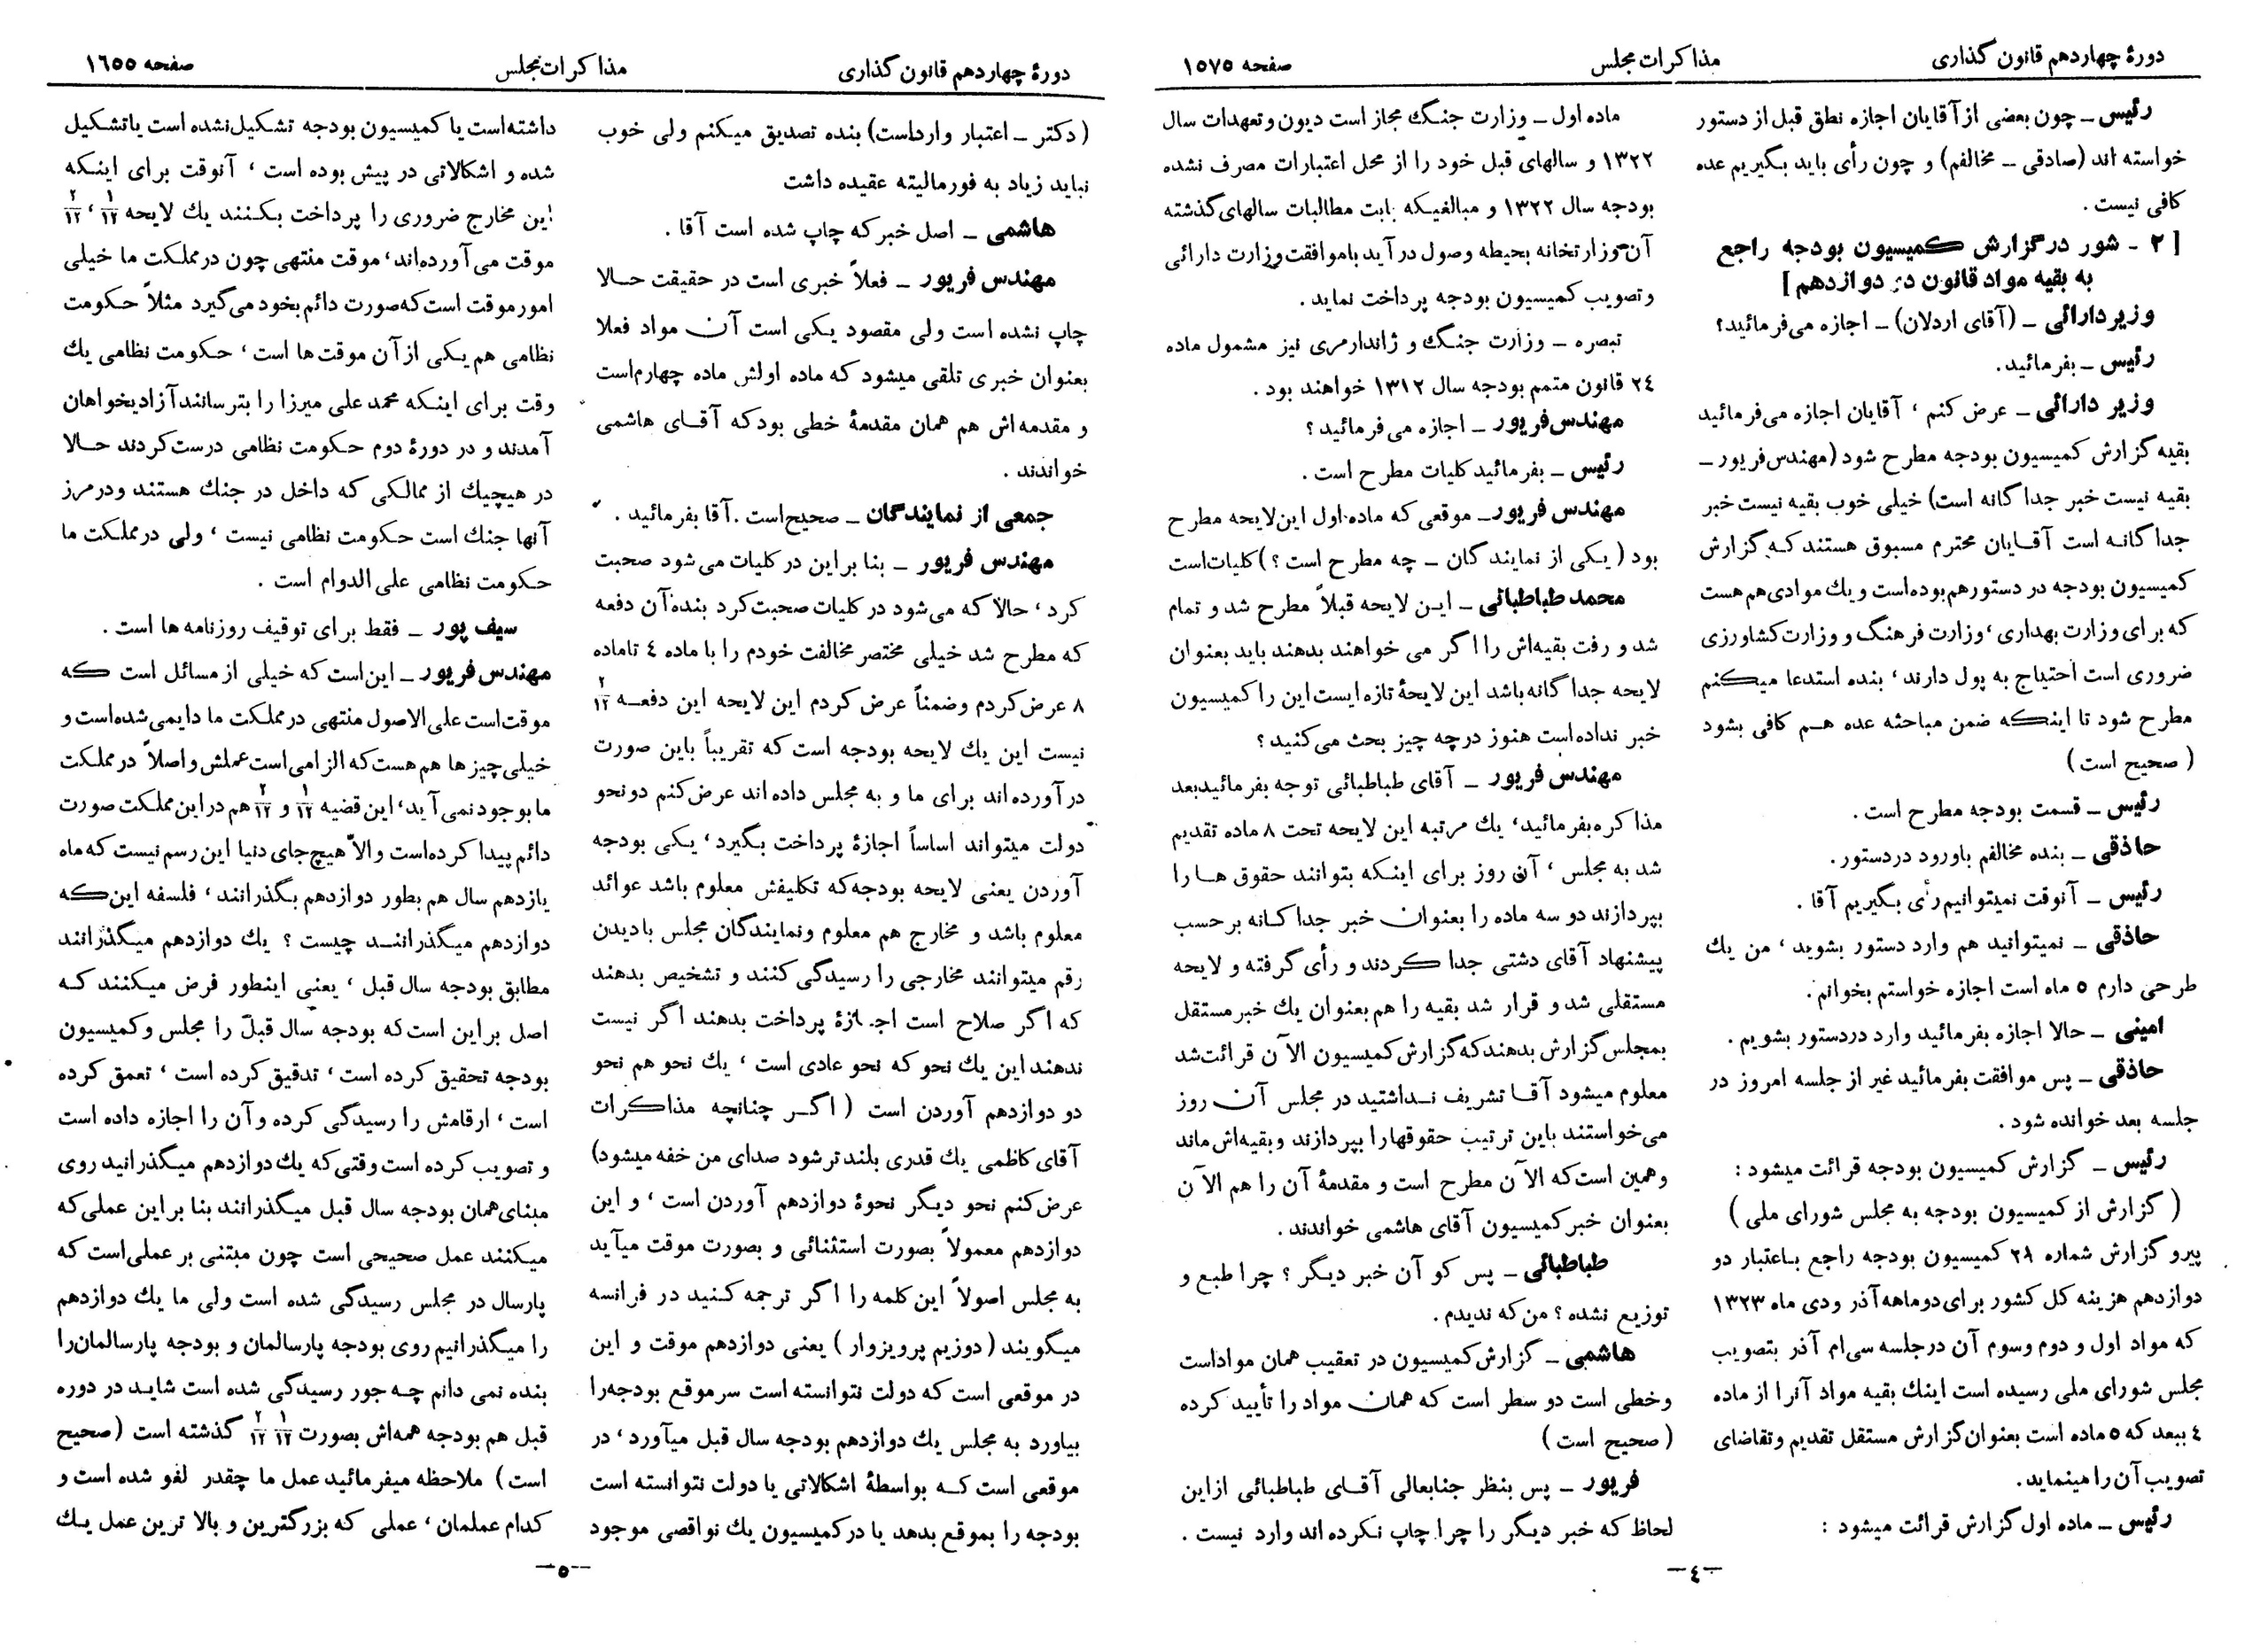 دورهٔ چهاردهم قانون گذاری
مذاکرات مجلس
صفحه ۱۵۷۵
رئیس ــ چون بعضی از آقایان اجازه نطق قبل از دستور
خواسته اند (صادقی ــ مخالفم) و چون رأی باید بگیریم عده
کافی نیست .
[ ۲ - شور در گزارش کمیسیون بودجه راجع
به بقیه مواد قانون دو دوازدهم ]
وزیر دارائی ــ (آقای اردلان) ــ اجازه می‌فرمائید؟
رئیس ــ بفرمائید.
وزیر دارائی ــ عرض کنم ، آقایان اجازه می‌فرمائید
بقیه گزارش کمیسیون بودجه مطرح شود (مهندس فریور ــ
بقیه نیست خبر جداگانه است) خیلی خوب بقیه نیست خبر
جداگانه است آقایان محترم مسبوق هستند که گزارش
کمیسیون بودجه در دستور هم بوده است و یك موادی هم هست
که برای وزارت بهداری ، وزارت فرهنگ و وزارت کشاورزی
ضروری است احتیاج به پول دارند ، بنده استدعا میکنم
مطرح شود تا اینکه ضمن مباحثه عده هم کافی بشود
( صحیح است )
رئیس ــ قسمت بودجه مطرح است .
حاذقی ــ بنده مخالفم باورود در دستور .
رئیس ــ آنوقت نمیتوانیم رأی بگیریم آقا .
حاذقی ــ نمیتوانید هم وارد دستور بشوید ، من یك
طرحی دارم ۵ ماه است اجازه خواستم بخوانم.
امینی ــ حالا اجازه بفرمائید وارد در دستور بشویم .
حاذقی ــ پس موافقت بفرمائید غیر از جلسه امروز در
جلسه بعد خوانده شود .
رئیس ــ گزارش کمیسیون بودجه قرائت میشود :
( گزارش از کمیسیون بودجه به مجلس شورای ملی )
پیرو گزارش شماره ۲۹ کمیسیون بودجه راجع باعتبار دو
دوازدهم هزینه کل کشور برای دوماهه آذر ودی ماه ۱۳۲۳
که مواد اول و دوم وسوم آن در جلسه سی‌ام آذر بتصویب
مجلس شورای ملی رسیده است اینك بقیه مواد آنرا از ماده
٤ ببعد که ۵ ماده است بعنوان گزارش مستقل تقدیم وتقاضای
تصویب آن را مینماید.
رئیس ــ ماده اول گزارش قرائت میشود :
ماده اول ــ وزارت جنگ مجاز است دیون و تعهدات سال
۱۳۲۲ و سالهای قبل خود را از محل اعتبارات مصرف نشده
بودجه سال ۱۳۲۲ و مبالغیکه بابت مطالبات سالهای گذشته
آن وزارتخانه بحیطه وصول در آید باموافقت وزارت دارائی
وتصویب کمیسیون بودجه پرداخت نماید .
تبصره ــ وزارت جنگ و ژاندارمری نیز مشمول ماده
۲٤ قانون متمم بودجه سال ۱۳۱۲ خواهند بود .
مهندس فریور ــ اجازه می‌فرمائید ؟
رئیس ــ بفرمائید کلیات مطرح است .
مهندس فریور ــ موقعی که ماده اول این لایحه مطرح
بود ( یکی از نمایندگان ــ چه مطرح است ؟ ) کلیات است
محمد طباطبائی ــ این لایحه قبلاً مطرح شد و تمام
شد و رفت بقیه‌اش را اگر می خواهند بدهند باید بعنوان
لایحه جداگانه باشد این لایحهٔ تازه ایست این را کمیسیون
خبر نداده است هنوز درچه چیز بحث می‌کنید ؟
مهندس فریور ــ آقای طباطبائی توجه بفرمائید بعد
مذاکره بفرمائید ، یك مرتبه این لایحه تحت ۸ ماده تقدیم
شد به مجلس ، آن روز برای اینکه بتوانند حقوق ها را
بپردازند دو سه ماده را بعنوان خبر جداگانه بر حسب
پیشنهاد آقای دشتی جدا کردند و رأی گرفته و لایحه
مستقلی شد و قرار شد بقیه را هم بعنوان یك خبر مستقل
بمجلس گزارش بدهند که گزارش کمیسیون الآن قرائت شد
معلوم میشود آقا تشریف نداشتید در مجلس آن روز
می‌خواستند باین ترتیب حقوقها را بپردازند و بقیه‌اش ماند
وهمین است که الآن مطرح است و مقدمهٔ آن را هم الآن
بعنوان خبر کمیسیون آقای هاشمی خواندند .
طباطبائی ــ پس کو آن خبر دیگر ؟ چرا طبع و
توزیع نشده ؟ من که ندیدم .
هاشمی ــ گزارش کمیسیون در تعقیب همان مواد است
وخطی است دو سطر است که همان مواد را تأیید کرده
( صحیح است )
فریور ــ پس بنظر جنابعالی آقای طباطبائی از این
لحاظ که خبر دیگر را چرا چاپ نکرده اند وارد نیست .
ــ٤ــ
دورهٔ چهاردهم قانون گذاری
مذاکرات مجلس
صفحه ۱٦۵۵
( دکتر ــ اعتبار وارداست) بنده تصدیق میکنم ولی خوب
نباید زیاد به فورمالیته عقیده داشت
هاشمی ــ اصل خبر که چاپ شده است آقا .
مهندس فریور ــ فعلاً خبری است در حقیقت حالا
چاپ نشده است ولی مقصود یکی است آن مواد فعلا
بعنوان خبری تلقی میشود که ماده اولش ماده چهارم است
و مقدمه اش هم همان مقدمهٔ خطی بود که آقای هاشمی
خواندند .
جمعی از نمایندگان ــ صحیح است . آقا بفرمائید .
مهندس فریور ــ بنا براین در کلیات می‌شود صحبت
کرد ، حالا که می‌شود در کلیات صحبت کرد بنده آن دفعه
که مطرح شد خیلی مختصر مخالفت خودم را با ماده ٤ تاماده
۸ عرض کردم وضمناً عرض کردم این لایحه این دفعه ۲/۱۲
نیست این یك لایحه بودجه است که تقریباً باین صورت
در آورده اند برای ما و به مجلس داده اند عرض کنم دونحو
دولت میتواند اساساً اجازهٔ پرداخت بگیرد ، یکی بودجه
آوردن یعنی لایحه بودجه که تکلیفش معلوم باشد عوائد
معلوم باشد و مخارج هم معلوم ونمایندگان مجلس بادیدن
رقم میتوانند مخارجی را رسیدگی کنند و تشخیص بدهند
که اگر صلاح است اجازهٔ پرداخت بدهند اگر نیست
ندهند این یك نحو که نحو عادی است ، یك نحو هم نحو
دو دوازدهم آوردن است ( اگر چنانچه مذاکرات
آقای کاظمی یك قدری بلندتر شود صدای من خفه میشود)
عرض کنم نحو دیگر نحوهٔ دوازدهم آوردن است ، و این
دوازدهم معمولاً بصورت استثنائی و بصورت موقت میآید
به مجلس اصولاً این کلمه را اگر ترجمه کنید در فرانسه
میگویند ( دوزیم پرویزوار ) یعنی دوازدهم موقت و این
در موقعی است که دولت نتوانسته است سر موقع بودجه را
بیاورد به مجلس یك دوازدهم بودجه سال قبل میآورد ، در
موقعی است که بواسطهٔ اشکالاتی یا دولت نتوانسته است
بودجه را بموقع بدهد یا در کمیسیون یك نواقصی موجود
داشته است یا کمیسیون بودجه تشکیل نشده است یا تشکیل
شده و اشکالاتی در پیش بوده است ، آنوقت برای اینکه
این مخارج ضروری را پرداخت بکنند یك لایحه ۱/۱۲ ، ۲/۱۲
موقت می آورده‌اند ، موقت منتهی چون در مملکت ما خیلی
امور موقت است که صورت دائم بخود می‌گیرد مثلاً حکومت
نظامی هم یکی از آن موقت ها است ، حکومت نظامی یك
وقت برای اینکه محمد علی میرزا را بترسانند آزادیخواهان
آمدند و در دورهٔ دوم حکومت نظامی درست کردند حالا
در هیچیك از ممالکی که داخل در جنك هستند ودر مرز
آنها جنك است حکومت نظامی نیست ، ولی در مملکت ما
حکومت نظامی علی الدوام است .
سیف پور ــ فقط برای توقیف روزنامه ها است .
مهندس فریور ــ این است که خیلی از مسائل است که
موقت است علی الاصول منتهی در مملکت ما دایمی شده است و
خیلی چیز ها هم هست که الزامی است عملش واصلاً در مملکت
ما بوجود نمی آید ، این قضیه ۱/۱۲ و ۲/۱۲ هم در این مملکت صورت
دائم پیدا کرده است والاّ هیچ جای دنیا این رسم نیست که ماه
یازدهم سال هم بطور دوازدهم بگذرانند ، فلسفه این که
دوازدهم میگذرانند چیست ؟ یك دوازدهم میگذرانند
مطابق بودجه سال قبل ، یعنی اینطور فرض میکنند که
اصل براین است که بودجه سال قبل را مجلس و کمیسیون
بودجه تحقیق کرده است ، تدقیق کرده است ، تعمق کرده
است ، ارقامش را رسیدگی کرده و آن را اجازه داده است
و تصویب کرده است وقتی که یك دوازدهم میگذرانید روی
مبنای همان بودجه سال قبل میگذرانند بنا براین عملی که
میکنند عمل صحیحی است چون مبتنی بر عملی است که
پارسال در مجلس رسیدگی شده است ولی ما یك دوازدهم
را میگذرانیم روی بودجه پارسالمان و بودجه پارسالمان را
بنده نمی دانم چه جور رسیدگی شده است شاید در دوره
قبل هم بودجه همه‌اش بصورت ۱/۱۲ ۲/۱۲ گذشته است (صحیح
است ) ملاحظه میفرمائید عمل ما چقدر لغو شده است و
کدام عملمان ، عملی که بزرگترین و بالا ترین عمل یك
ــ۵ــ